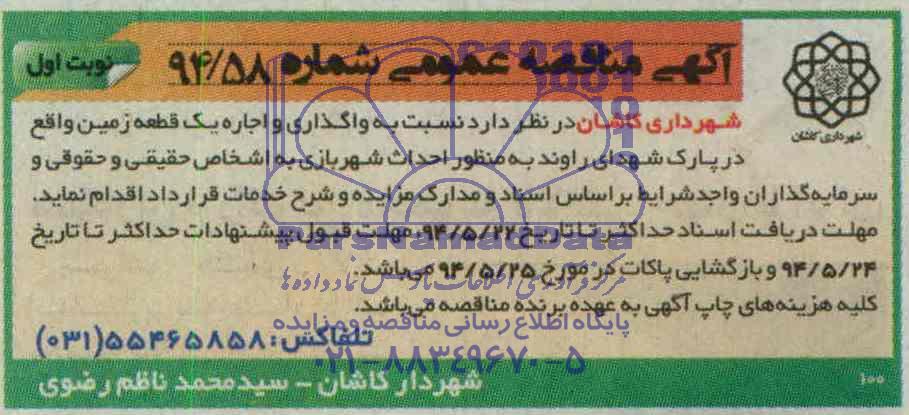 آگهی مناقصه عمومی شماره ۹۴/۵۸
نوبت اول
شهرداری کاشان
شهرداری کاشان در نظر دارد نسبت به واگذاری و اجاره یک قطعه زمین واقع
در پارک شهدای راوند به منظور احداث شهربازی به اشخاص حقیقی و حقوقی و
سرمایه‌گذاران واجد شرایط بر اساس اسناد و مدارک مزایده و شرح خدمات قرارداد اقدام نماید.
مهلت دریافت اسناد حداکثر تا تاریخ ۹۴/۵/۲۲، مهلت قبول پیشنهادات حداکثر تا تاریخ
۹۴/۵/۲۴ و بازگشایی پاکات در مورخ ۹۴/۵/۲۵ می‌باشد.
کلیه هزینه‌های چاپ آگهی به عهده برنده مناقصه می‌باشد.
تلفاکس: ۵۵۴۶۵۸۵۸(۰۳۱)
شهردار کاشان - سیدمحمد ناظم رضوی
۱۰۰
ParsNamadData
پایگاه اطلاع رسانی مناقصه و مزایده
۰۲۱-۸۸۳۴۹۶۷۰-۵